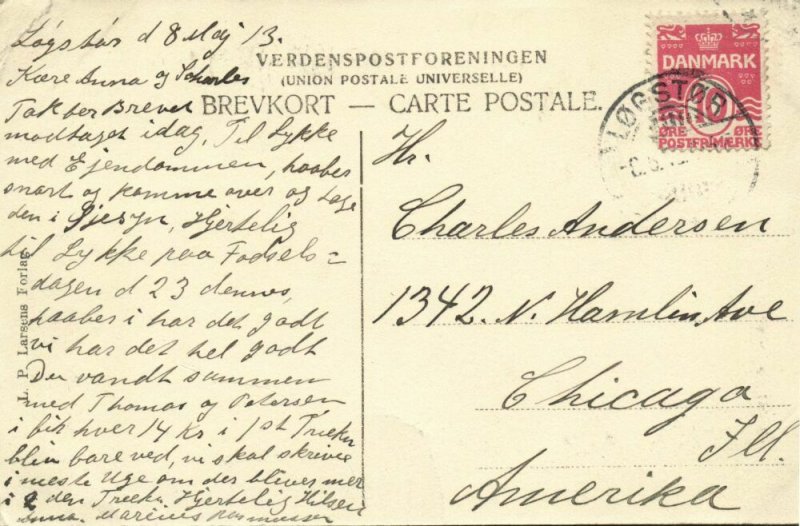 Løgstør d 8 Maj 13.
Kære Anna og Scharles
Tak ber Brevet
modtaget idag, Til Lykke
med Ejendommen, haabes
snart og komme over og tage
den i Øjesyn, Hjertelig
til Lykke paa Fødsels=
dagen d 23 dennes,
haabes i har det godt
vi har det hel godt
Du vandt sammen
med Thomas og Petersen
i fik hver 14 Kr i 1st Trækn
bliv bare ved, vi skal skrive
i næste Uge om der bliver mer
i 2 den Trækn, Hjertelig Hilsen
Marinus Rasmussen
L. P. Larsens Forlag
VERDENSPOSTFORENINGEN
(UNION POSTALE UNIVERSELLE)
BREVKORT — CARTE POSTALE.
DANMARK
10
ØRE ØRE
POSTFRIMÆRKE
LØGSTØR
Hr.
Charles Andersen
1342. N. Hamlin Ave
Chicago
Ill.
Amerika